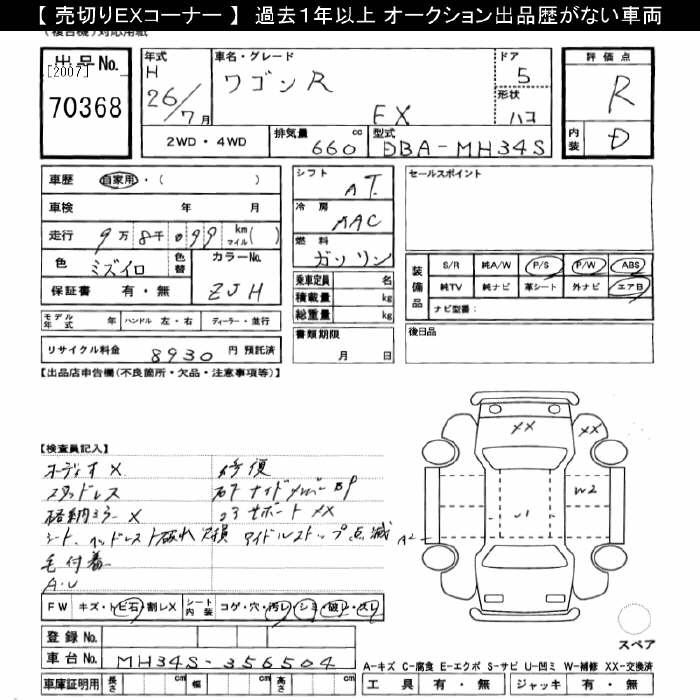 【 売切りEXコーナー 】 過去1年以上 オークション出品歴がない車両
(複合機)対応用紙
出品No. 年式 車名・グレード ドア 評価点
[2007] H ワゴンR 5 R
70368 26/7月 FX 形状 ハコ 内装 D
2WD・4WD 排気量 660 cc 型式 DBA-MH34S
車歴 自家用・( ) シフト AT セールスポイント
車検 年 月 冷房 AAC
走行 9万8千 99 km マイル( ) 燃料 ガソリン
色 ミズイロ 色替 カラーNo. ZJH
保証書 有・無
乗車定員 名
積載量 kg
総重量 kg
装備品 S/R 純A/W P/S P/W ABS
純TV 純ナビ 革シート 外ナビ エアB
ナビ型番:
モデル年式 年 ハンドル 左・右 ディーラー・並行
書類期限 月 日
後日品
リサイクル料金 8930 円 預託済
【出品店申告欄(不良箇所・欠品・注意事項等)】
【検査員記入】
オーディオ X 修復
スタッドレス 右Fサイドメンバー BP
格納ミラー X コアサポート XX
シート、ヘッドレスト破れ 欠損 アイドルストップ点滅
毛付着
A・U
XX XX
W2
U1
A2
FW キズ・トビ石・割レX シート内装 コゲ・穴・汚レ・シミ・破レ・スレ
スペア
登録No.
車台No. MH34S-356504
A-キズ C-腐食 E-エクボ S-サビ U-凹ミ W-補修 XX-交換済
車庫証明用 長さ cm 幅 cm 高さ cm
工具 有・無 ジャッキ 有・無